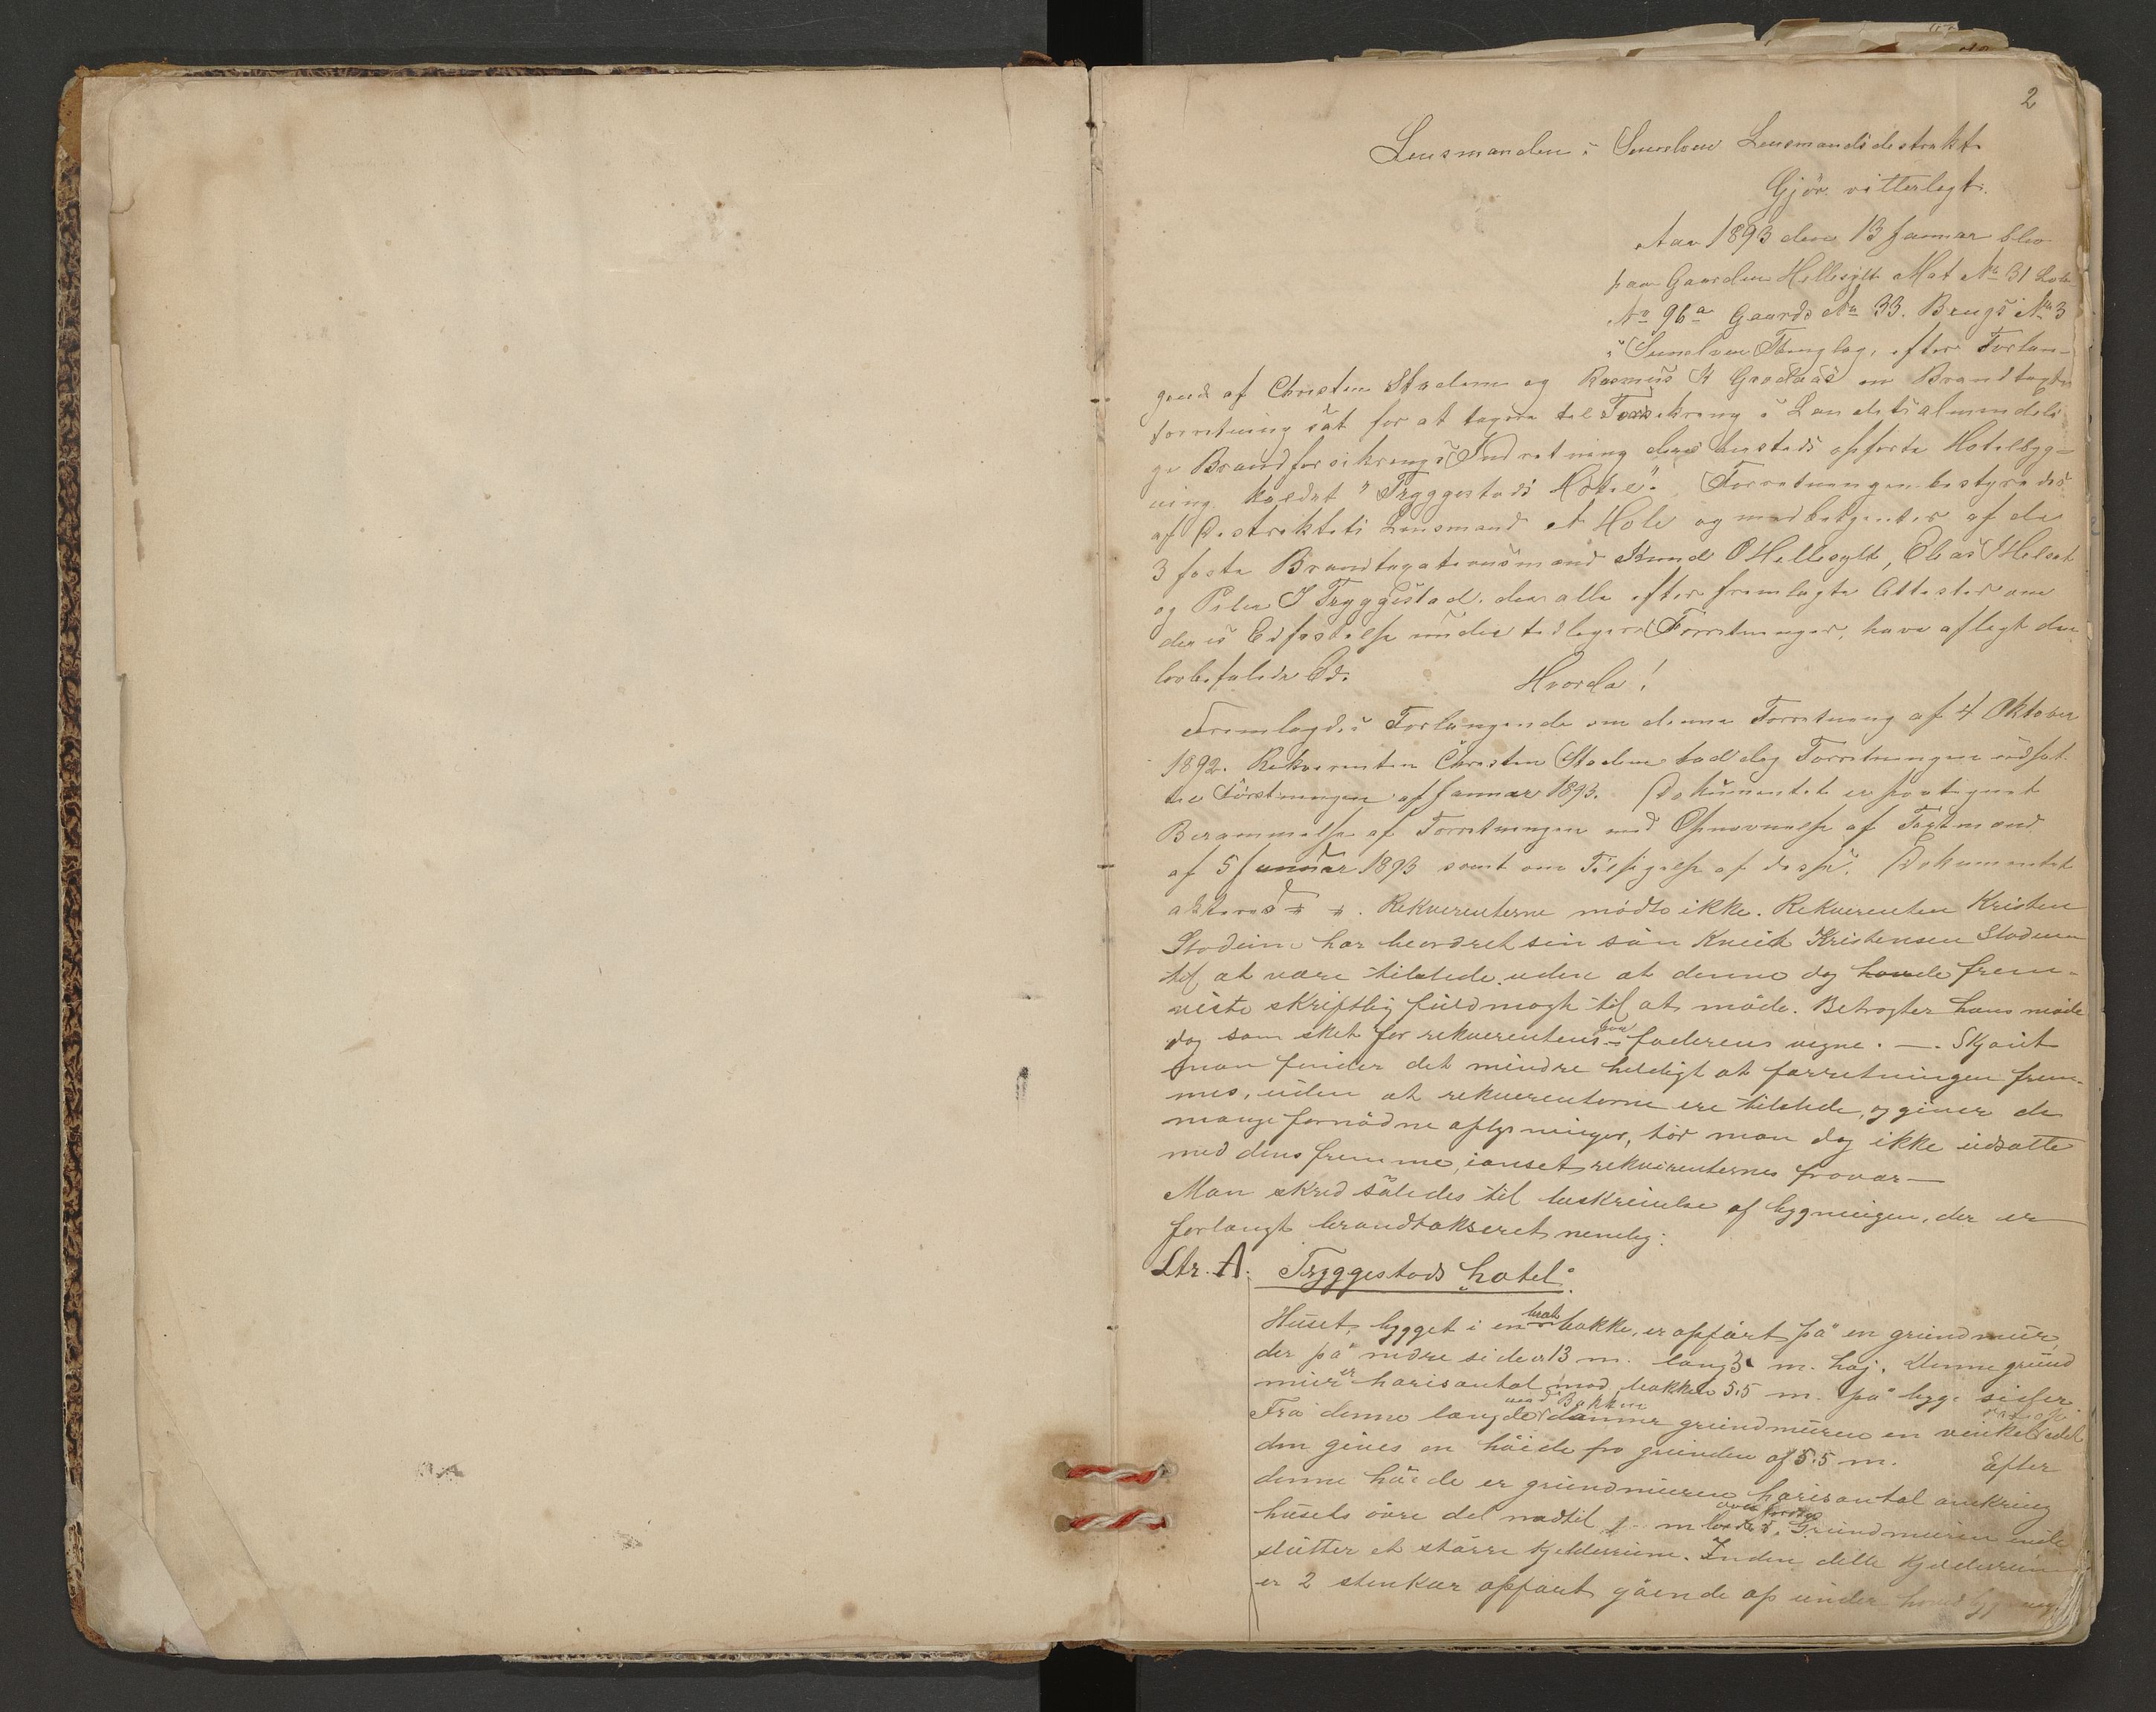 2
Lensmanden i Sunelven Lensmandsdistrikt
Gjør vitterlegt:
Aar 1893 den 13 Januar blev
paa Gaarden Hellesylt Mat No 31 Løbe
No 96a Gaards No 33. Brugs No 3
i Sunelven Thinglag, efter Forlan-
gende af Christen Stadem og Rasmus K Grodaas en Brandtagts
forretning sat for at tagera til Forsikring i Landets almindeli
ge Brandforsikrings Indretning den hersteds opførte Hotelbyg-
ning kaldet "Tryggestads Hotel". Forretningen bestyredes
af Distriktets Lensmand A Hole og medbetjentes af de
3 faste Brandtagationsmænd Knud O Hellesylt, Elias Helset
og Peder J Tryggestad. der alle efter fremlagte Attester om
deres Edfæstelse under tidligere Forretninger, have aflagt den
lovbefalede Ed.
Hvorda!
Fremlagdes Forlangende om denne Forretning af 4 Oktober
1892. Rekvirenten Christen Stadem bad dog Forretningen udsat
til af Januar 1893. Dokumentet er påategnet
Berammelse af Forretningen med Opnævnelse af Tagtmænd
af 5 Januar 1893 samt om Tilsigelse af disse. Dokumentet
akteres. Rekverenterne mødte ikke. Rekverenten Kristen
Stadeim har beordret sin søn Knut Kristensen Stadem
til at være tilstede uden at denne dog havde frem-
viste skriftlig fuldmagt til at møde. Betragter hans møde
dog som sket for rekverentens faderens vegne. —. Skjønt
man finder det mindre heldigt at forretningen frem-
mes, uden at rekverenterne ere tilstede, og giver de
mange fornødne oplysninger, tør man dog ikke udsætte
med dens fremme, uanset rekvirenternes fravær —
Man skred således til beskrivelse af bygningen, der er
forlangt brandtakseret nemlig:
Ltr. A. Tryggestads hotel:
Huset, bygget i en brat bakke, er opført på en grundmur,
der på nedre side er 13 m. lang 3 m. høj. Denne grund
mur er horisontal mod bakken 5.5 m. på begge sider.
Fra denne længde mod Bakken danner grundmuren en vinkel ret op idet
den gives en høide fra grunden af 5.5 m. Efter
denne høide er grundmuren horisontal omkring
husets øvre del nedtil 1 m over Grundmuren inde
slutter et større kjelderrum. Inden dette Kjelderrum
er 2 stenkar opført gående op under hovedbygningen